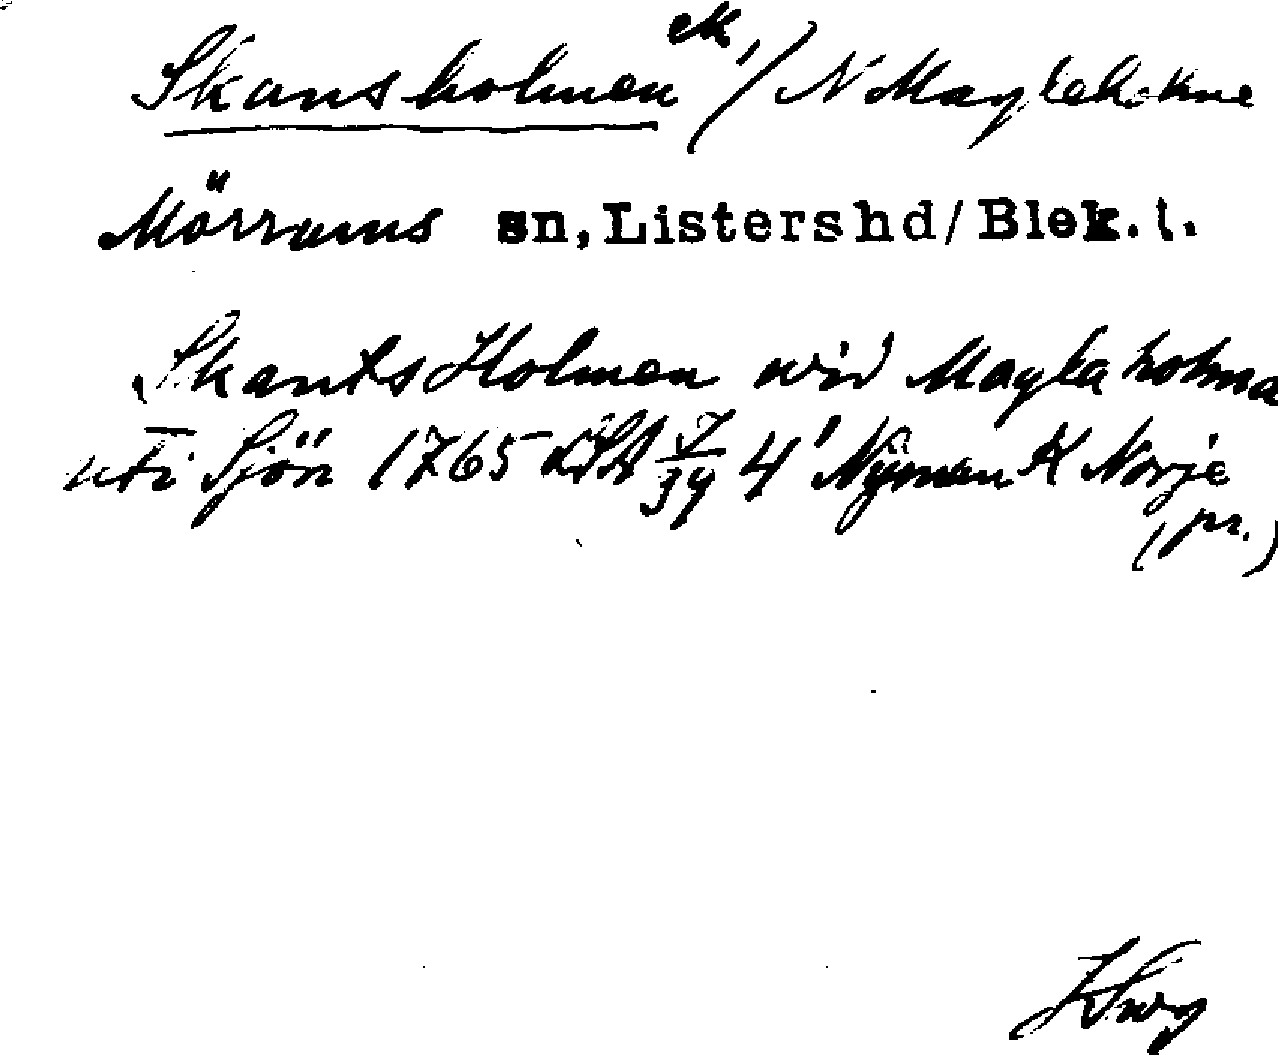 Skansholmen ek, / N Magleholme
Mörrums sn, Listers hd/Blek. l.
Skants Holmen wid Magla holma
uti Sjön 1765 LSA 7/34 4¹ Nyman K Norje
(pr.)